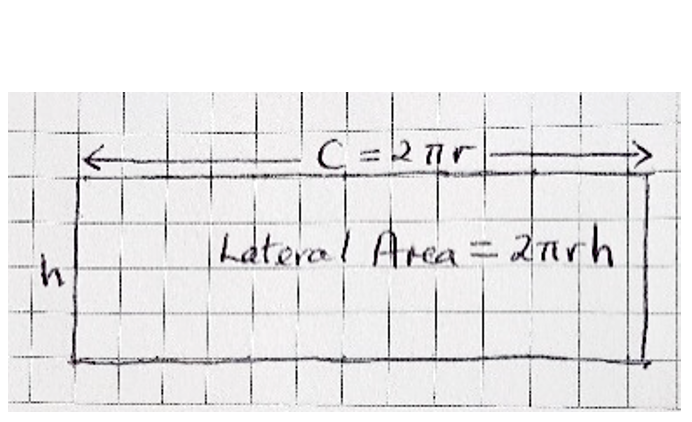 C = 2πr
Lateral Area = 2πrh
h